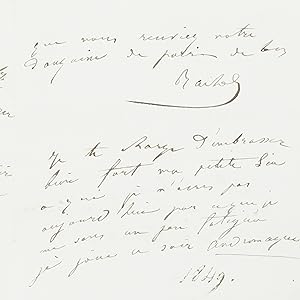 que vous receviez notre
douzaine de paire de bas
Rachel
Je te charge d'embrasser
bien fort ma petite
a que je n'écris pas
aujourd'hui parce que je
me sens un peu fatiguée
je joue ce soir andromaque
1849.